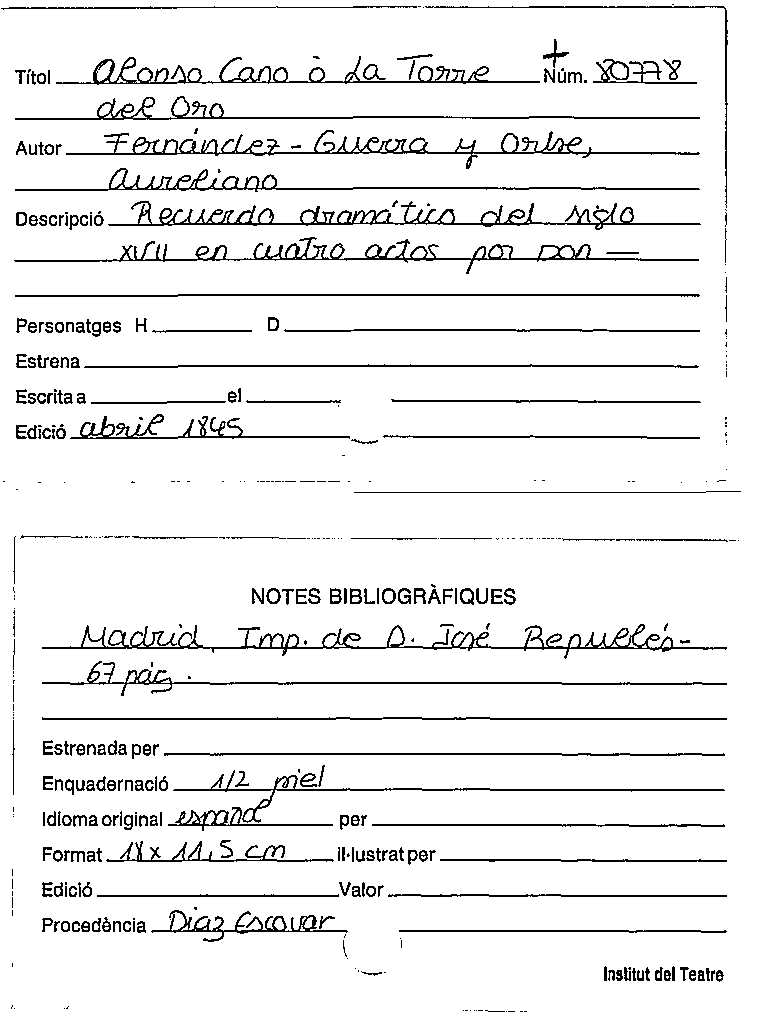 Títol Alonso Cano ò La Torre + Núm. 80778
del Oro
Autor Fernández-Guerra y Orbe,
Aureliano
Descripció Recuerdo dramático del siglo
XVII en cuatro actos por Don —
Personatges H D
Estrena
Escrita a el
Edició abril 1845
NOTES BIBLIOGRÀFIQUES
Madrid, Imp. de D. José Repullés-
67 pág.
Estrenada per
Enquadernació 1/2 piel
Idioma original español per
Format 18 x 11,5 cm il·lustrat per
Edició Valor
Procedència Diaz Escovar
Institut del Teatre